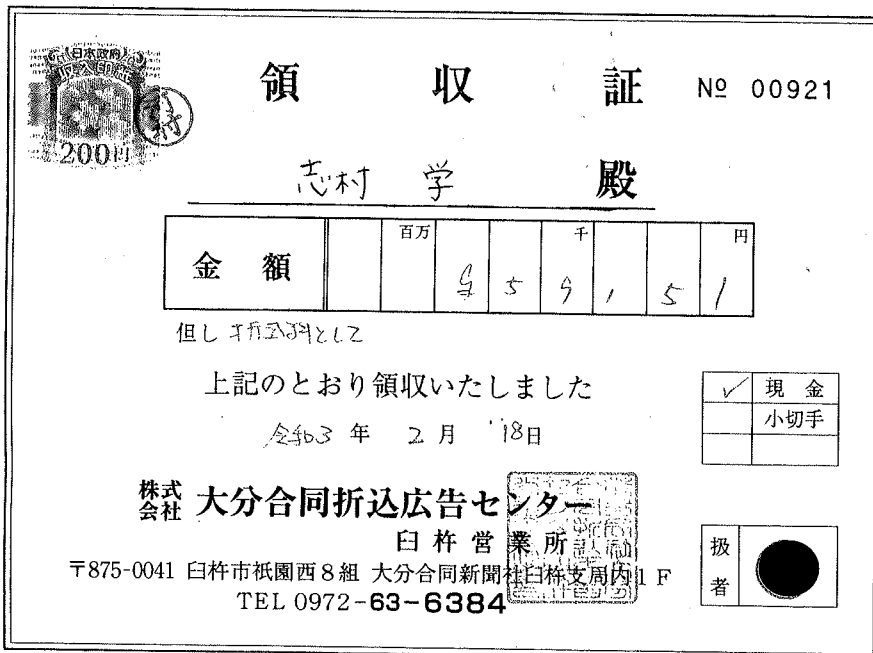 日本政府
収入印紙
200円
領収証 № 00921
志村 学 殿
金額 百万 千 円
¥59151
但し 折込料として
上記のとおり領収いたしました
令和3年 2月 18日
現金
小切手
株式会社 大分合同折込広告センター
臼杵営業所
〒875-0041 臼杵市祇園西8組 大分合同新聞社臼杵支局内1F
TEL 0972-63-6384
扱者